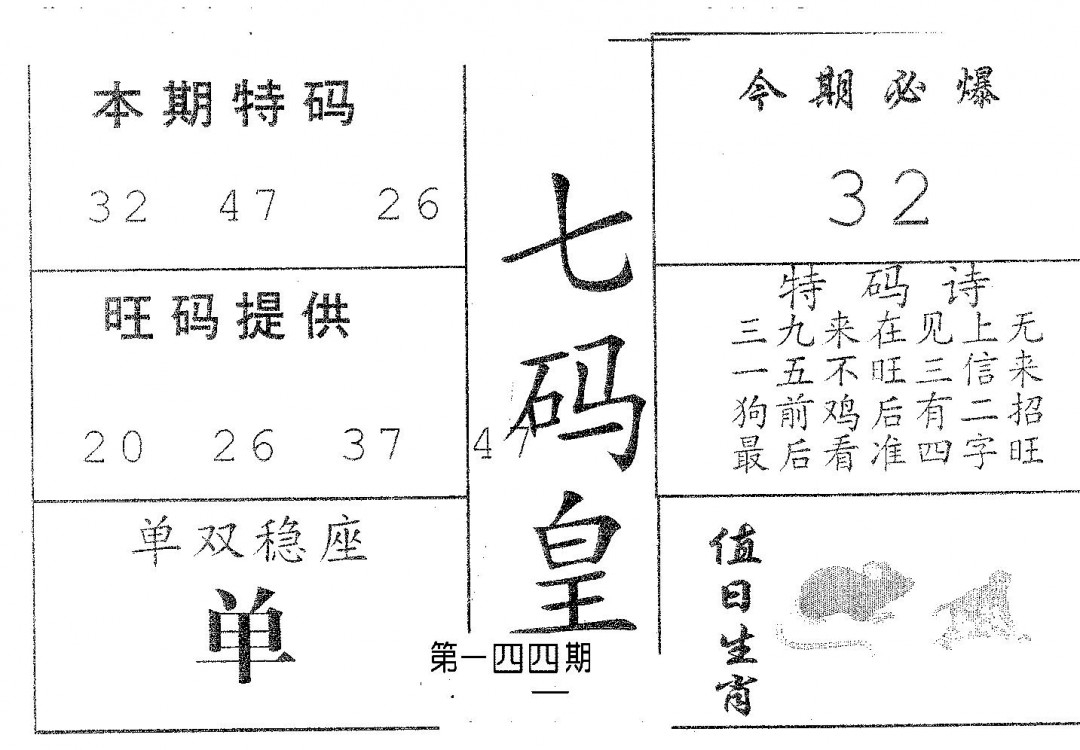 本期特码
32 47 26
旺码提供
20 26 37 47
单双稳座
单
七码皇
第一四四期
今期必爆
32
特码诗
三九来在见上无
一五不旺三信来
狗前鸡后有二招
最后看准四字旺
值日生肖